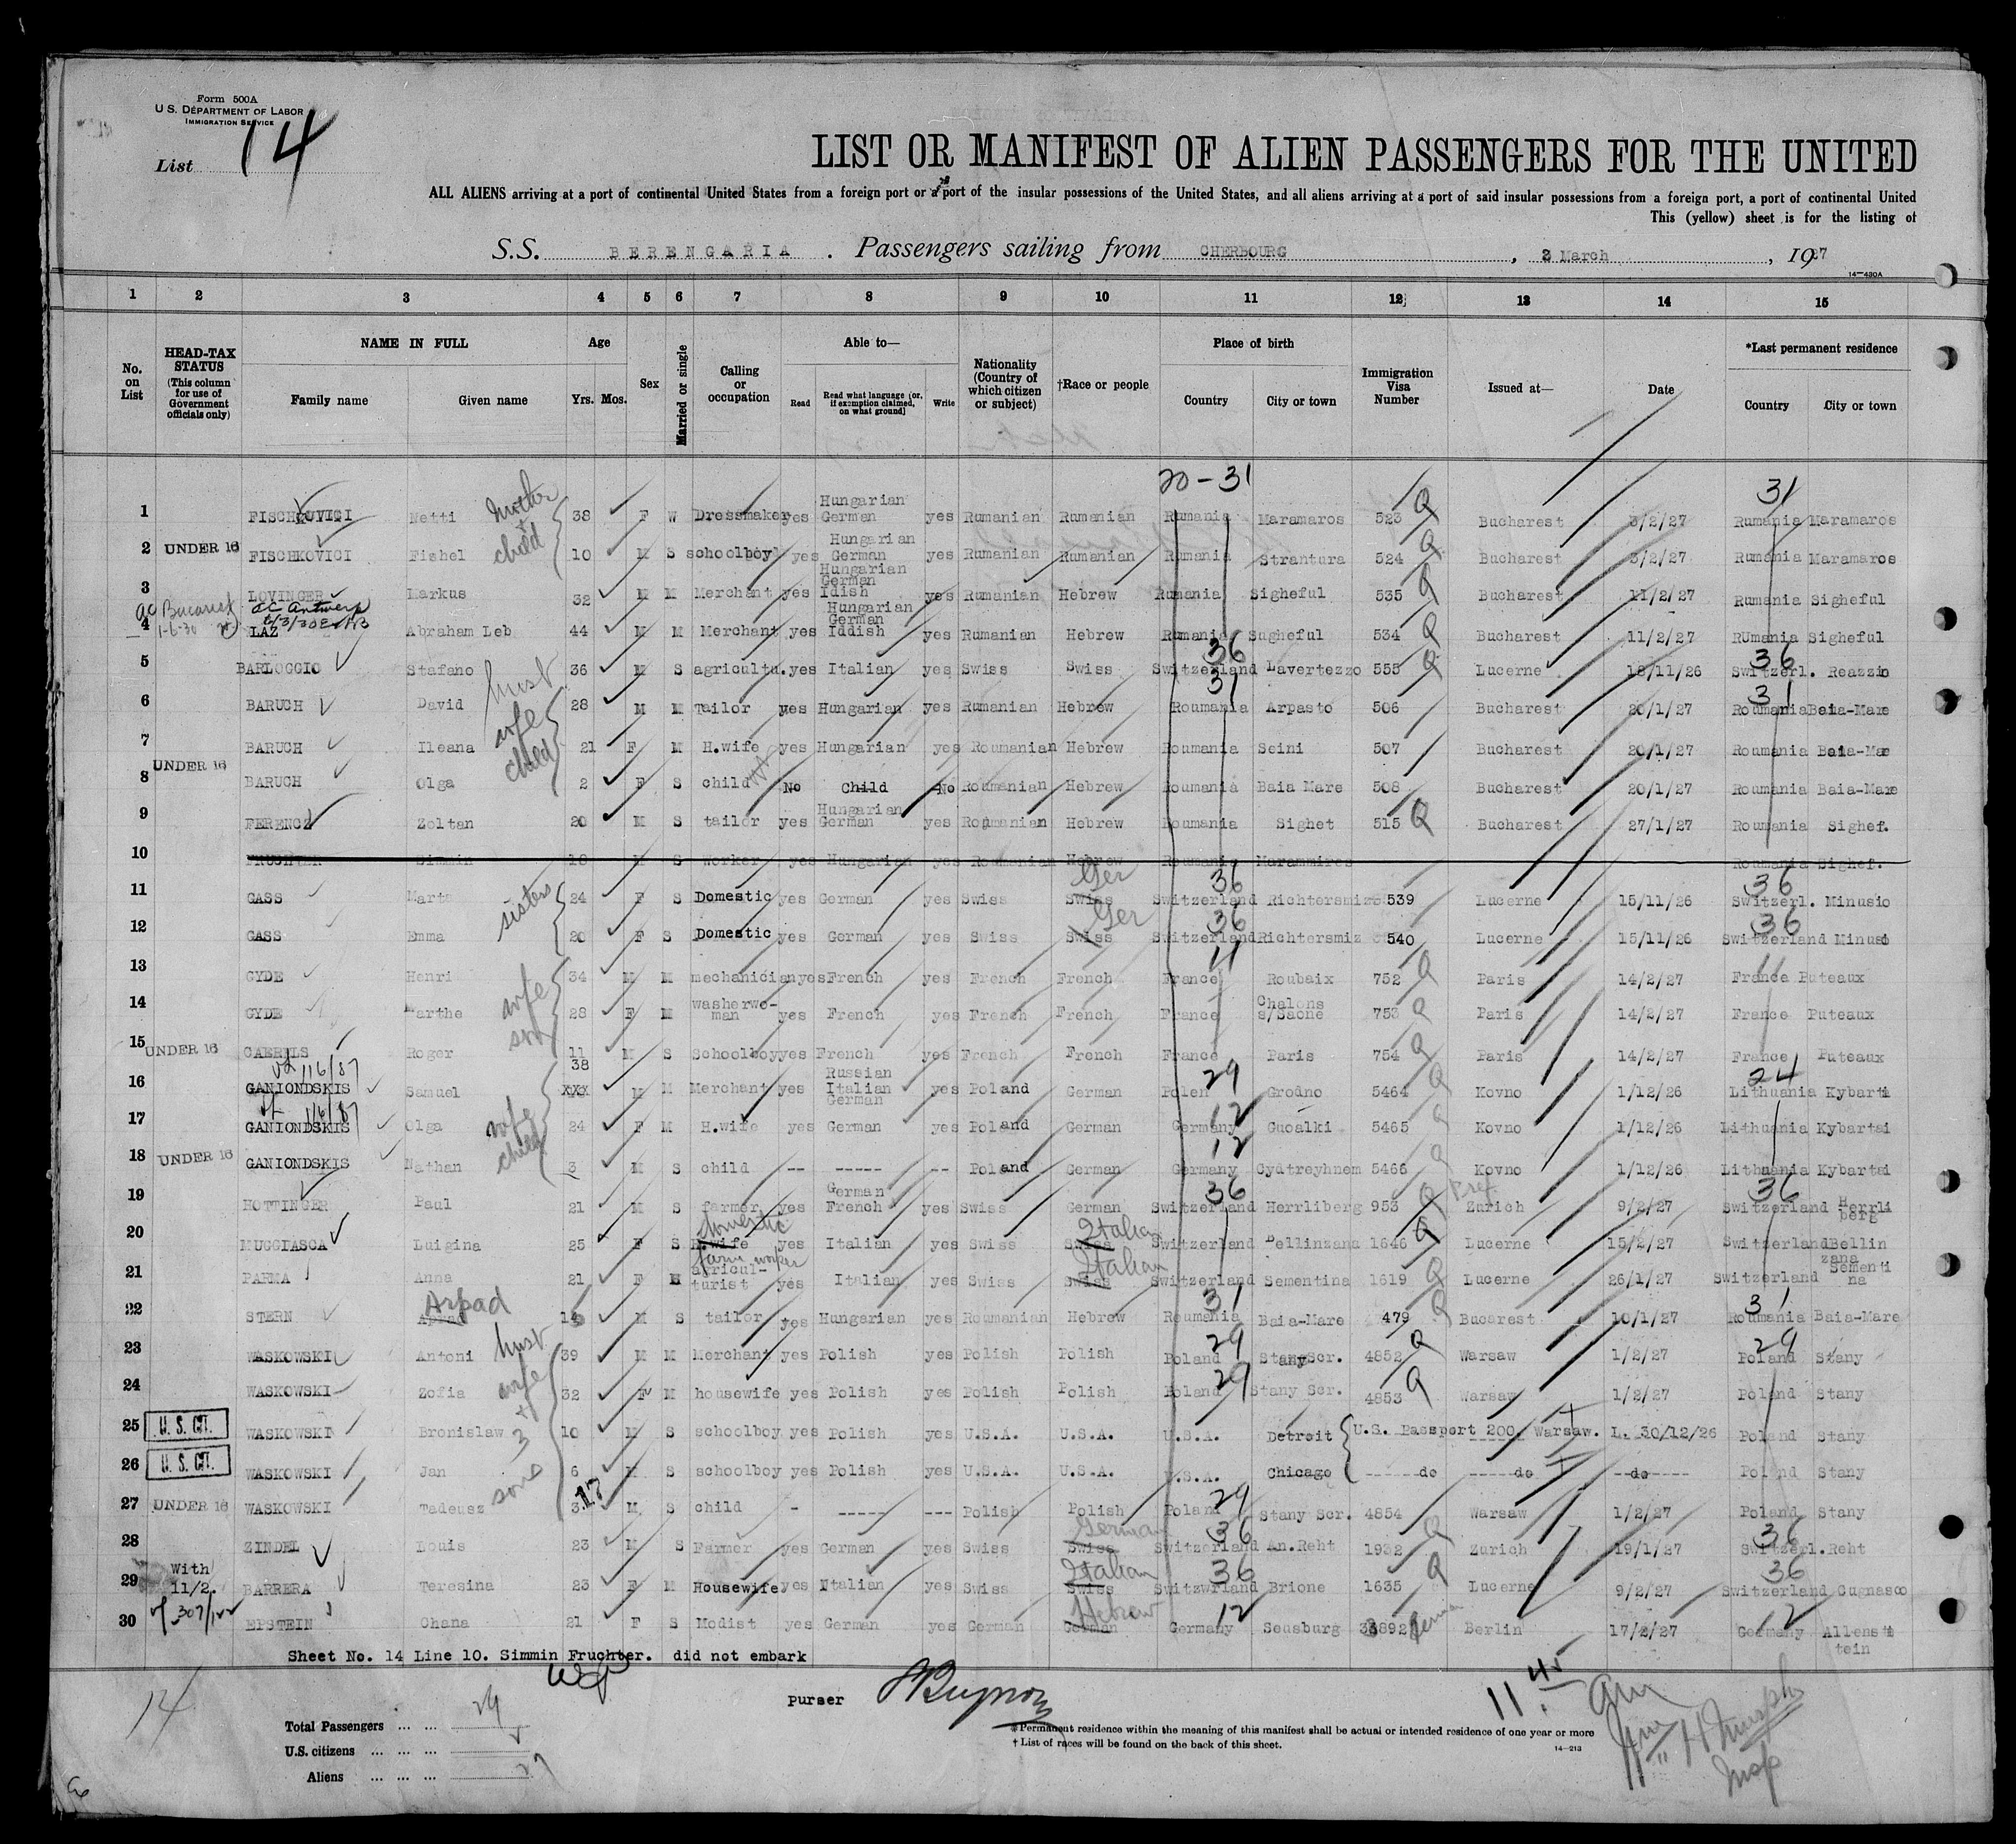 Form 500A
U S. DEPARTMENT OF LABOR
IMMIGRATION SERVICE
List 14
LIST OR MANIFEST OF ALIEN PASSENGERS FOR THE UNITED
ALL ALIENS arriving at a port of continental United States from a foreign port or a port of the insular possessions of the United States, and all aliens arriving at a port of said insular possessions from a foreign port, a port of continental United
This (yellow) sheet is for the listing of
S.S. BERENGARIA . Passengers sailing from CHERBOURG , 2 March , 1927
14-430A
1 2 3 4 5 6 7 8 9 10 11 12 13 14 15
No. on List
HEAD-TAX STATUS (This column for use of Government officials only)
NAME IN FULL Family name Given name
Age Yrs. Mos.
Sex
Married or single
Calling or occupation
Able to— Read Read what language (or, if exemption claimed, on what ground) Write
Nationality (Country of which citizen or subject)
†Race or people
Place of birth Country City or town
Immigration Visa Number
Issued at—
Date
*Last permanent residence Country City or town
20-31 31
1 FISCHKOVICI Netti Mother + child 38 F W Dressmaker yes Hungarian German yes Rumanian Rumanian Rumania Maramaros 523 Q Bucharest 3/2/27 Rumania Maramaros
2 UNDER 16 FISCHKOVICI Fishel 10 M S schoolboy yes Hungarian German yes Rumanian Rumanian Rumania Strantura 524 Q Bucharest 3/2/27 Rumania Maramaros
3 LOVINGER Markus 32 M M Merchant yes Hungarian German Idish yes Rumanian Hebrew Rumania Sigheful 535 Q Bucharest 11/2/27 Rumania Sigheful
4 Bucarest 1-6-30 Antwerp LAZ Abraham Leb 44 M M Merchant yes Hungarian German Iddish yes Rumanian Hebrew Rumania Sugheful 534 Q Bucharest 11/2/27 RUmania Sigheful
5 BARLOGGIO Stafano 36 M S agricultu. yes Italian yes Swiss Swiss 36 Switzerland Lavertezzo 555 Q Lucerne 18/11/26 36 Switzerl. Reazzio
6 BARUCH David husb 28 M M Tailor yes Hungarian yes Rumanian Hebrew 31 Roumania Arpasto 506 Bucharest 20/1/27 31 Roumania Baia-Mare
7 BARUCH Ileana wife 21 F M H.wife yes Hungarian yes Roumanian Hebrew Roumania Seini 507 Bucharest 20/1/27 Roumania Baia-Mae
8 UNDER 16 BARUCH Olga child 2 F S child No Child No Roumanian Hebrew Roumania Baia Mare 508 Bucharest 20/1/27 Roumania Baia-Mare
9 FERENCZ Zoltan 20 M S tailor yes Hungarian German yes Roumanian Hebrew Roumania Sighet 515 Q Bucharest 27/1/27 Roumania Sighef.
10 FRUCHTER Simmin 18 M S worker yes Hungarian yes Roumanian Hebrew Roumania Maramires Roumania Sighef.
11 GASS Marta sisters 24 F S Domestic yes German yes Swiss Swiss Ger 36 Switzerland Richtersmiz 539 Lucerne 15/11/26 36 Switzerl. Minusio
12 GASS Emma 20 F S Domestic yes German yes Swiss Swiss Ger 36 Switzerland Richtersmiz 540 Lucerne 15/11/26 36 Switzerland Minuso
13 GYDE Henri 34 M M mechanician yes French yes French French 11 France Roubaix 752 Q Paris 14/2/27 11 France Puteaux
14 GYDE Marthe wife 28 F M washerwo- man yes French yes French French France Chalons s/Saone 753 Q Paris 14/2/27 France Puteaux
15 UNDER 16 CAERELS Roger son 11 M S Schoolboy yes French yes French French France Paris 754 Q Paris 14/2/27 France Puteaux
16 116/87 GANIONDSKIS Samuel 38 xxx M M Merchant yes Russian Italian German yes Poland German 29 Polen Grodno 5464 Q Kovno 1/12/26 24 Lithuania Kybarti
17 116/87 GANIONDSKIS Olga wife 24 F M H.wife yes German yes Poland German 12 Germany Guoalki 5465 Q Kovno 1/12/26 Lithuania Kybartai
18 UNDER 16 GANIONDSKIS Nathan child 3 M S child -- ----- -- Poland German 12 Germany Cydtreyhnem 5466 Q Kovno 1/12/26 Lithuania Kybartai
19 HOTTINGER Paul 21 M S farmer yes German French yes Swiss German 36 Switzerland Herrliberg 953 Q Pref. Zurich 9/2/27 36 Switzerland Herrli berg
20 MUGGIASCA Luigina 25 F S H.wife domestic yes Italian yes Swiss Swiss Italian Switzerland Bellinzana 1646 Q Lucerne 15/2/27 Switzerland Bellin zana
21 PARMA Anna 21 F M agricul- turist farm worker yes Italian yes Swiss Swiss Italian Switzerland Sementina 1619 Q Lucerne 26/1/27 Switzerland Sementi na
22 STERN Arpad 14 M S tailor yes Hungarian yes Roumanian Hebrew 31 Roumania Baia-Mare 479 Q Bucarest 10/1/27 31 Roumania Baia-Mare
23 WASKOWSKI Antoni husb 39 M M Merchant yes Polish yes Polish Polish 29 Poland Stany Scr. 4852 Q Warsaw 1/2/27 29 Poland Stany
24 WASKOWSKI Zofia wife 32 F M housewife yes Polish yes Polish Polish 29 Poland Stany Scr. 4853 Q Warsaw 1/2/27 Poland Stany
25 U. S. CIT. WASKOWSKI Bronislaw + 3 sons 10 M S schoolboy yes Polish yes U.S.A. U.S.A. U.S.A. Detroit U.S. Passport 200, Warsaw. L. 30/12/26 Poland Stany
26 U. S. CIT. WASKOWSKI Jan 6 M S schoolboy yes Polish yes U.S.A. U.S.A. U.S.A. Chicago ------do -----do --do---- Poland Stany
27 UNDER 16 WASKOWSKI Tadeusz 3 M S child - ----- --- Polish Polish 29 Poland Stany Scr. 4854 Warsaw 1/2/27 Poland Stany
28 ZINDEL Louis 23 M S Farmer yes German yes Swiss Swiss German 36 Switzerland An.Reht 1932 Q Zurich 19/1/27 36 Switzerl. Reht
29 With 11/2. BARRERA Teresina 23 F M Housewife yes Italian yes Swiss Swiss Italian 36 Switzwrland Brione 1635 Q Lucerne 9/2/27 36 Switzerland Cugnasco
30 EPSTEIN Chana 21 F S Modist yes German yes German German Hebrew 12 Germany Sensburg 33892 Berlin 17/2/27 12 Germany Allenste tein
Sheet No. 14 Line 10. Simmin Fruchter. did not embark
14
purser
11 45
Total Passengers ... ... 29
U.S. citizens ... ... ... 2
Aliens ... ... ... 27
* Permanent residence within the meaning of this manifest shall be actual or intended residence of one year or more
† List of races will be found on the back of this sheet.
14-213